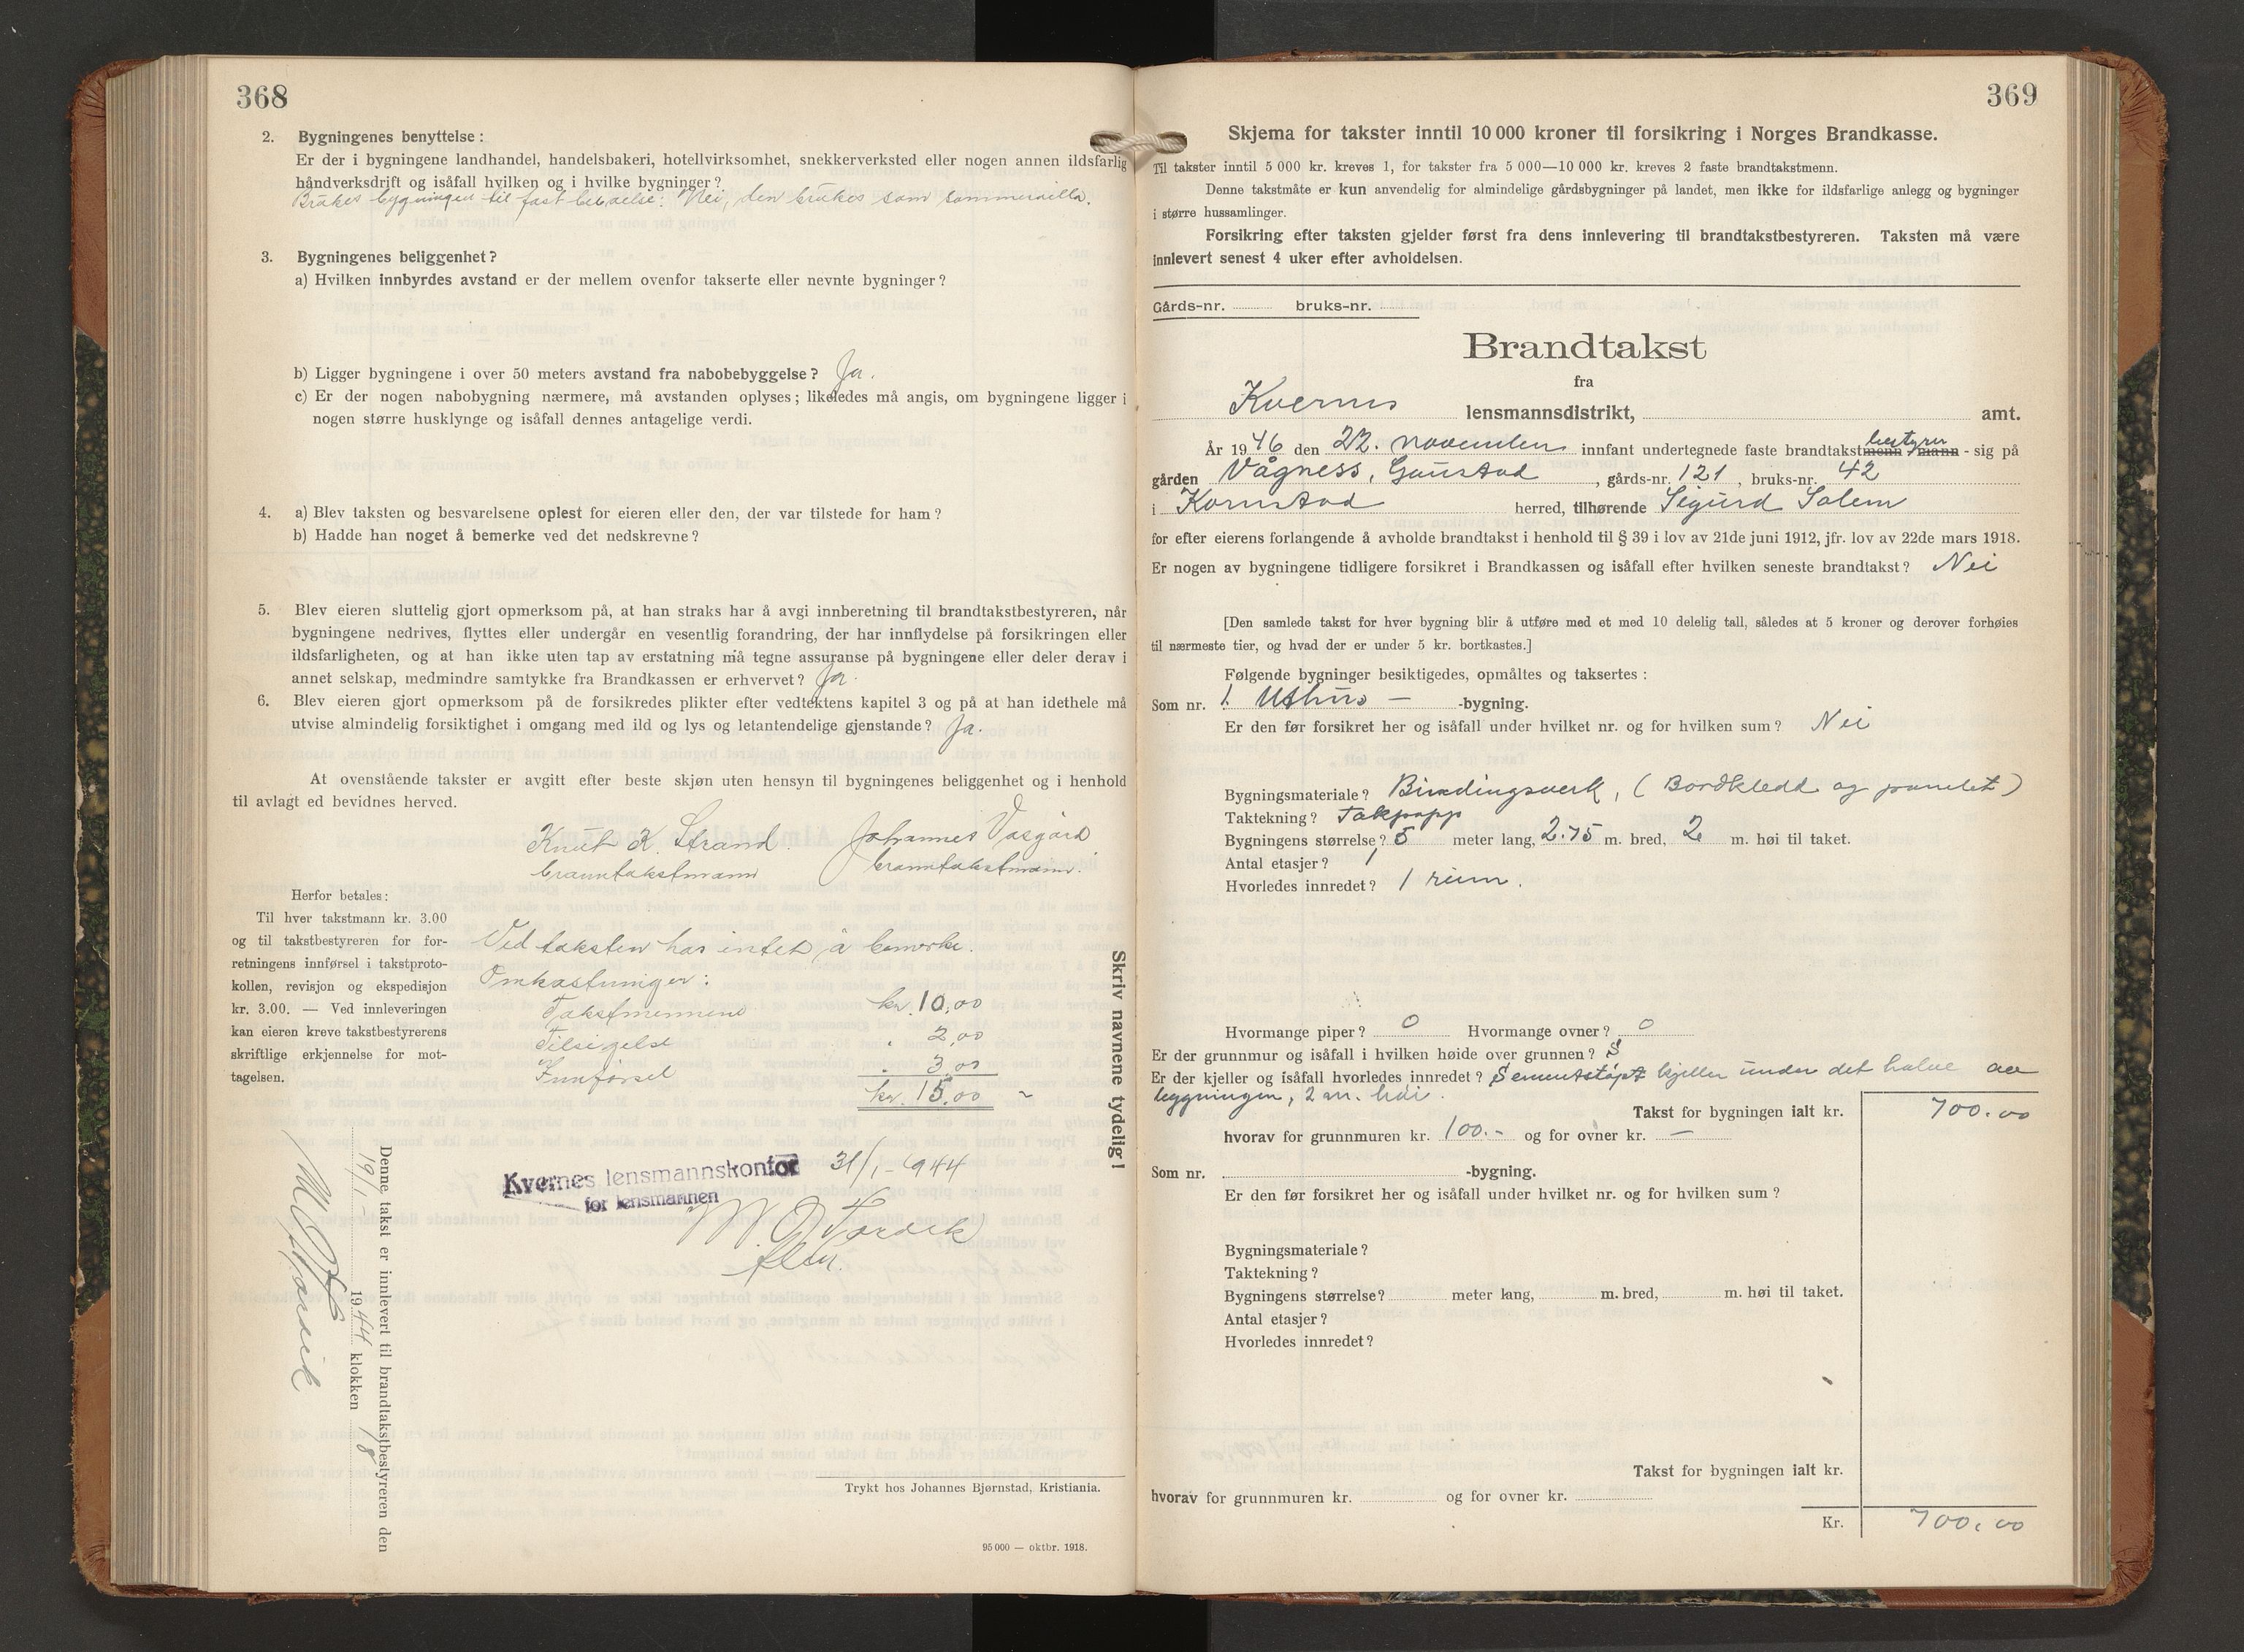 368
2. Bygningenes benyttelse:
Er der i bygningene landhandel, handelsbakeri, hotellvirksomhet, snekkerverksted eller nogen annen ildsfarlig
håndverksdrift og isåfall hvilken og i hvilke bygninger?
Brukes bygningen til fast beboelse: Nei, den brukes som sommervilla.
3. Bygningenes beliggenhet?
a) Hvilken innbyrdes avstand er der mellem ovenfor takserte eller nevnte bygninger?
b) Ligger bygningene i over 50 meters avstand fra nabobebyggelse? Ja.
c) Er der nogen nabobygning nærmere, må avstanden oplyses; likeledes må angis, om bygningene ligger i
nogen større husklynge og isåfall dennes antagelige verdi.
4. a) Blev taksten og besvarelsene oplest for eieren eller den, der var tilstede for ham?
b) Hadde han noget å bemerke ved det nedskrevne?
5. Blev eieren sluttelig gjort opmerksom på, at han straks har å avgi innberetning til brandtakstbestyreren, når
bygningene nedrives, flyttes eller undergår en vesentlig forandring, der har innflydelse på forsikringen eller
ildsfarligheten, og at han ikke uten tap av erstatning må tegne assuranse på bygningene eller deler derav i
annet selskap, medmindre samtykke fra Brandkassen er erhvervet? Ja.
6. Blev eieren gjort opmerksom på de forsikredes plikter efter vedtektens kapitel 3 og på at han idethele må
utvise almindelig forsiktighet i omgang med ild og lys og letantendelige gjenstande? Ja.
At ovenstående takster er avgitt efter beste skjøn uten hensyn til bygningenes beliggenhet og i henhold
til avlagt ed bevidnes herved.
Knut K. Strand. Johannes Vasgård
branntakstmann branntakstmann.
Herfor betales:
Til hver takstmann kr. 3.00
og til takstbestyreren for for-
retningens innførsel i takstproto-
kollen, revisjon og ekspedisjon
kr. 3.00. — Ved innleveringen
kan eieren kreve takstbestyrerens
skriftlige erkjennelse for mot-
tagelsen.
Ved taksten har intet å bemerke.
Omkostninger:
Takstmennene kr. 10,00
Tilsigelse " 2,00
Innførsel " 3,00
kr. 15,00
Skriv navnene tydelig!
Kvernes lensmannskontor 31/1-1944
for lensmannen
Denne takst er innlevert til brandtakstbestyreren den
19/1- 1944 klokken 18
Trykt hos Johannes Bjørnstad, Kristiania.
95 000 — oktbr. 1918.
369
Skjema for takster inntil 10 000 kroner til forsikring i Norges Brandkasse.
Til takster inntil 5 000 kr. kreves 1, for takster fra 5 000—10 000 kr. kreves 2 faste brandtakstmenn.
Denne takstmåte er kun anvendelig for almindelige gårdsbygninger på landet, men ikke for ildsfarlige anlegg og bygninger
i større hussamlinger.
Forsikring efter taksten gjelder først fra dens innlevering til brandtakstbestyreren. Taksten må være
innlevert senest 4 uker efter avholdelsen.
Gårds-nr. bruks-nr.
Brandtakst
fra
Kvernes lensmannsdistrikt, amt.
bestyrer
År 1946 den 22. november innfant undertegnede faste brandtakstmenn -mann - sig på
gården Vågness, Gaustad, gårds-nr. 121, bruks-nr. 42
i Kornstad herred, tilhørende Sigurd Solem
for efter eierens forlangende å avholde brandtakst i henhold til § 39 i lov av 21de juni 1912, jfr. lov av 22de mars 1918.
Er nogen av bygningene tidligere forsikret i Brandkassen og isåfall efter hvilken seneste brandtakst? Nei
[Den samlede takst for hver bygning blir å utføre med et med 10 delelig tall, således at 5 kroner og derover forhøies
til nærmeste tier, og hvad der er under 5 kr. bortkastes.]
Følgende bygninger besiktigedes, opmåltes og taksertes:
Som nr. 1. Uthus — -bygning.
Er den før forsikret her og isåfall under hvilket nr. og for hvilken sum? Nei
Bygningsmateriale? Bindingsverk, (Bordkledd og panelet)
Taktekning? Takpapp
Bygningens størrelse? 5 meter lang, 2.75 m. bred, 2 m. høi til taket.
Antal etasjer? 1
Hvorledes innredet? 1 rum.
Hvormange piper? 0 Hvormange ovner? 0
Er der grunnmur og isåfall i hvilken høide over grunnen?
Er der kjeller og isåfall hvorledes innredet? Sementstøpt kjeller under det halve av
byggningen, 2 m. høi.
Takst for bygningen ialt kr. 700.00
hvorav for grunnmuren kr. 100.- og for ovner kr. —
Som nr. -bygning.
Er den før forsikret her og isåfall under hvilket nr. og for hvilken sum?
Bygningsmateriale?
Taktekning?
Bygningens størrelse? meter lang, m. bred, m. høi til taket.
Antal etasjer?
Hvorledes innredet?
Takst for bygningen ialt kr.
hvorav for grunnmuren kr. og for ovner kr.
Kr. 700.00